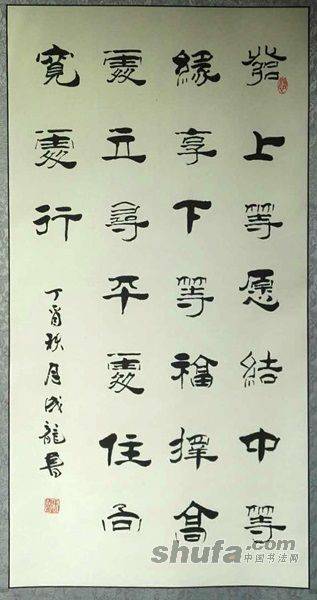 發上等愿結中等
緣享下等福擇高
處立尋平處住向
寬處行
丁酉秋月成龍書
shufa.com
中国书法网